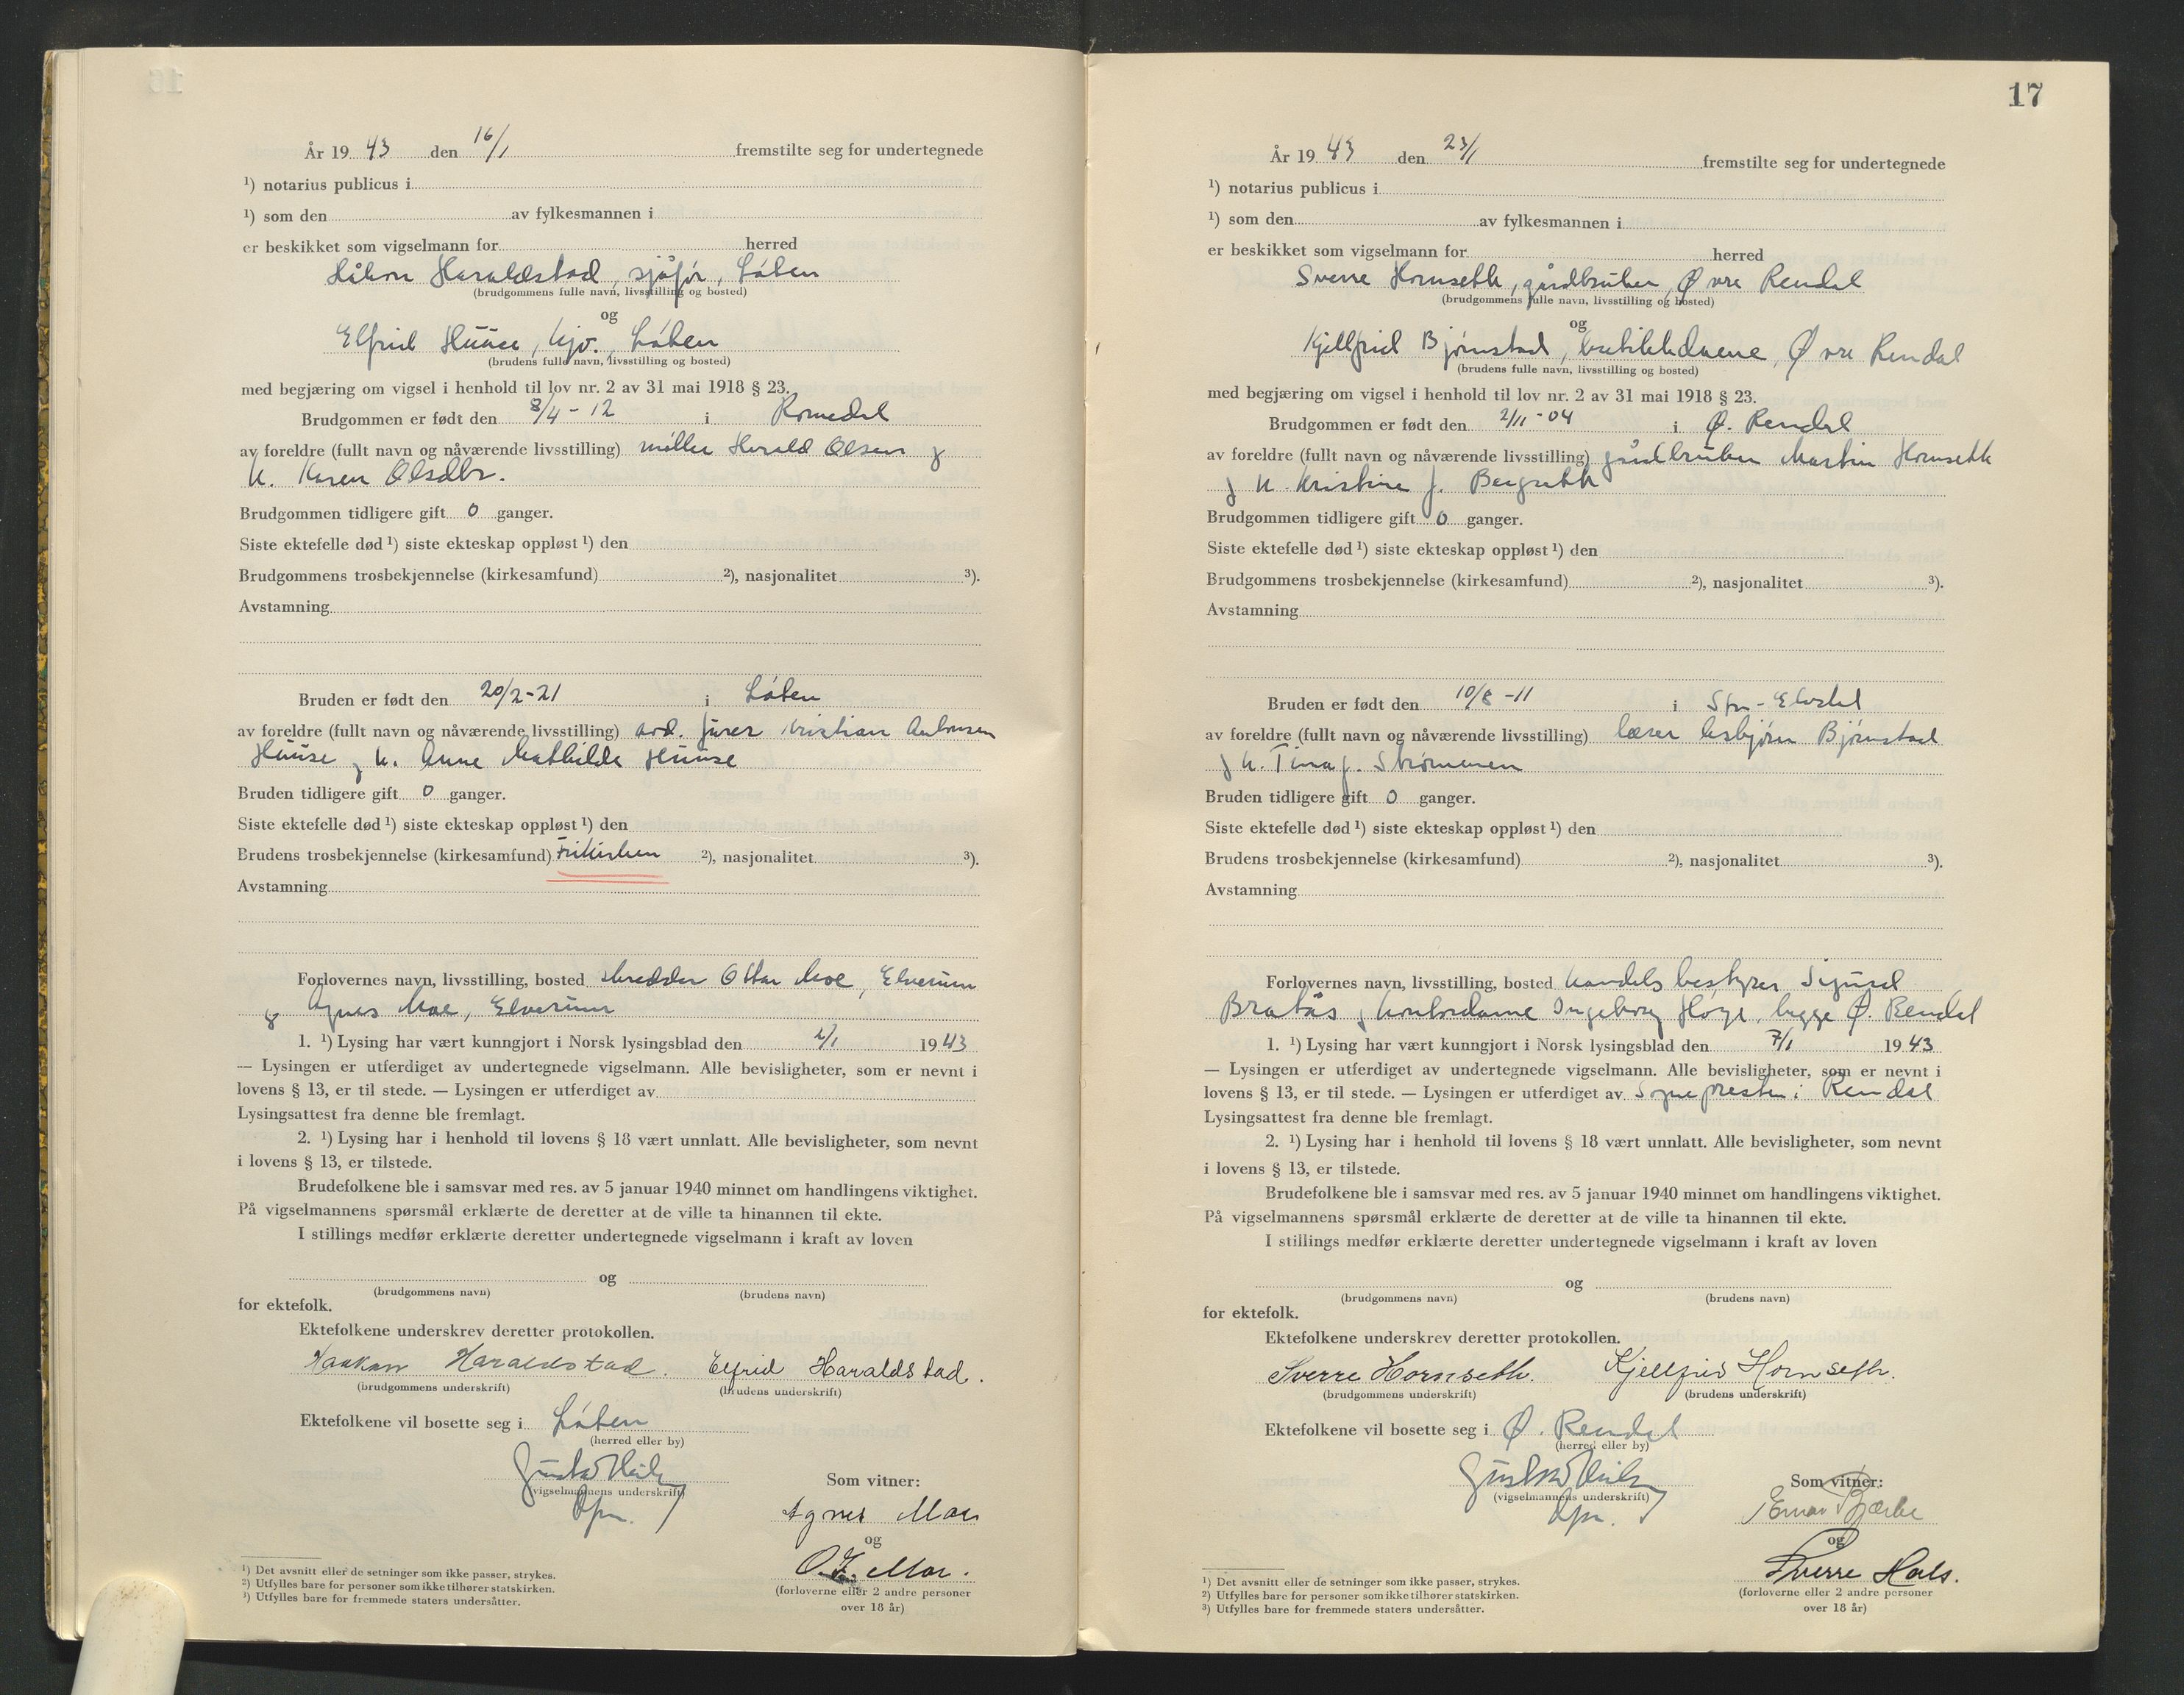 År 19 43 den 16/1 fremstilte seg for undertegnede
¹) notarius publicus i
¹) som den av fylkesmannen i
er beskikket som vigselmann for herred
Håkon Haraldstad, sjåfør, Løten
(brudgommens fulle navn, livsstilling og bosted)
og
Elfrid Huuse, hjv., Løten
(brudens fulle navn, livsstilling og bosted)
med begjæring om vigsel i henhold til lov nr. 2 av 31 mai 1918 § 23.
Brudgommen er født den 8/4 - 12 i Romedal
av foreldre (fullt navn og nåværende livsstilling) møller Harald Olsen og
h. Karen Olsdtr.
Brudgommen tidligere gift 0 ganger.
Siste ektefelle død ¹) siste ekteskap oppløst ¹) den
Brudgommens trosbekjennelse (kirkesamfund) ²), nasjonalitet ³).
Avstamning
Bruden er født den 20/2-21 i Løten
av foreldre (fullt navn og nåværende livsstilling) Kristian
Huuse og h. Anne Mathilde Huuse
Bruden tidligere gift 0 ganger.
Siste ektefelle død ¹) siste ekteskap oppløst ¹) den
Brudens trosbekjennelse (kirkesamfund) Frikirken ²), nasjonalitet ³).
Avstamning
Forlovernes navn, livsstilling, bosted skredder Ottar Moe, Elverum
og Agnes Moe, Elverum
1. ¹) Lysing har vært kunngjort i Norsk lysingsblad den 2/1 19 43
— Lysingen er utferdiget av undertegnede vigselmann. Alle bevisligheter, som er nevnt i
lovens § 13, er til stede. — Lysingen er utferdiget av
Lysingsattest fra denne ble fremlagt.
2. ¹) Lysing har i henhold til lovens § 18 vært unnlatt. Alle bevisligheter, som nevnt
i lovens § 13, er tilstede.
Brudefolkene ble i samsvar med res. av 5 januar 1940 minnet om handlingens viktighet.
På vigselmannens spørsmål erklærte de deretter at de ville ta hinannen til ekte.
I stillings medfør erklærte deretter undertegnede vigselmann i kraft av loven
og
(brudgommens navn) (brudens navn)
for ektefolk.
Ektefolkene underskrev deretter protokollen.
Haakon Haraldstad. Elfrid Haraldstad.
(brudgommens underskrift) (brudens underskrift)
Ektefolkene vil bosette seg i Løten
(herred eller by)
(vigselmannens underskrift)
Som vitner:
Agnes Moe
og
Moe.
(forloverne eller 2 andre personer
over 18 år)
¹) Det avsnitt eller de setninger som ikke passer, strykes.
²) Utfylles bare for personer som ikke tilhører statskirken.
³) Utfylles bare for fremmede staters undersåtter.
17
År 19 43 den 23/1 fremstilte seg for undertegnede
¹) notarius publicus i
¹) som den av fylkesmannen i
er beskikket som vigselmann for herred
Sverre Hornseth, gårdbruker, Øvre Rendal
(brudgommens fulle navn, livsstilling og bosted)
og
Kjellfrid Bjørnstad, butikkdame, Øvre Rendal
(brudens fulle navn, livsstilling og bosted)
med begjæring om vigsel i henhold til lov nr. 2 av 31 mai 1918 § 23.
Brudgommen er født den 2/11 - 04 i Ø. Rendal
av foreldre (fullt navn og nåværende livsstilling) gårdbruker Martin Hornseth
og h. Kristine f. Bergseth
Brudgommen tidligere gift 0 ganger.
Siste ektefelle død ¹) siste ekteskap oppløst ¹) den
Brudgommens trosbekjennelse (kirkesamfund) ²), nasjonalitet ³).
Avstamning
Bruden er født den 10/8 -11 i Stor-Elvdal
av foreldre (fullt navn og nåværende livsstilling) lærer Asbjørn Bjørnstad
og h. Tina f. Strømmen
Bruden tidligere gift 0 ganger.
Siste ektefelle død ¹) siste ekteskap oppløst ¹) den
Brudens trosbekjennelse (kirkesamfund) ²), nasjonalitet ³).
Avstamning
Forlovernes navn, livsstilling, bosted handelsbestyrer Sigurd
Bratås og kontordame Ingeborg Høye, begge Ø. Rendal
1. ¹) Lysing har vært kunngjort i Norsk lysingsblad den 7/1 19 43
— Lysingen er utferdiget av undertegnede vigselmann. Alle bevisligheter, som er nevnt i
lovens § 13, er til stede. — Lysingen er utferdiget av Sognepresten i Rendal
Lysingsattest fra denne ble fremlagt.
2. ¹) Lysing har i henhold til lovens § 18 vært unnlatt. Alle bevisligheter, som nevnt
i lovens § 13, er tilstede.
Brudefolkene ble i samsvar med res. av 5 januar 1940 minnet om handlingens viktighet.
På vigselmannens spørsmål erklærte de deretter at de ville ta hinannen til ekte.
I stillings medfør erklærte deretter undertegnede vigselmann i kraft av loven
og
(brudgommens navn) (brudens navn)
for ektefolk.
Ektefolkene underskrev deretter protokollen.
Sverre Hornseth. Kjellfrid Hornseth.
(brudgommens underskrift) (brudens underskrift)
Ektefolkene vil bosette seg i Ø. Rendal
(herred eller by)
(vigselmannens underskrift)
Som vitner:
Einar
og
Sverre Hals.
(forloverne eller 2 andre personer
over 18 år)
¹) Det avsnitt eller de setninger som ikke passer, strykes.
²) Utfylles bare for personer som ikke tilhører statskirken.
³) Utfylles bare for fremmede staters undersåtter.